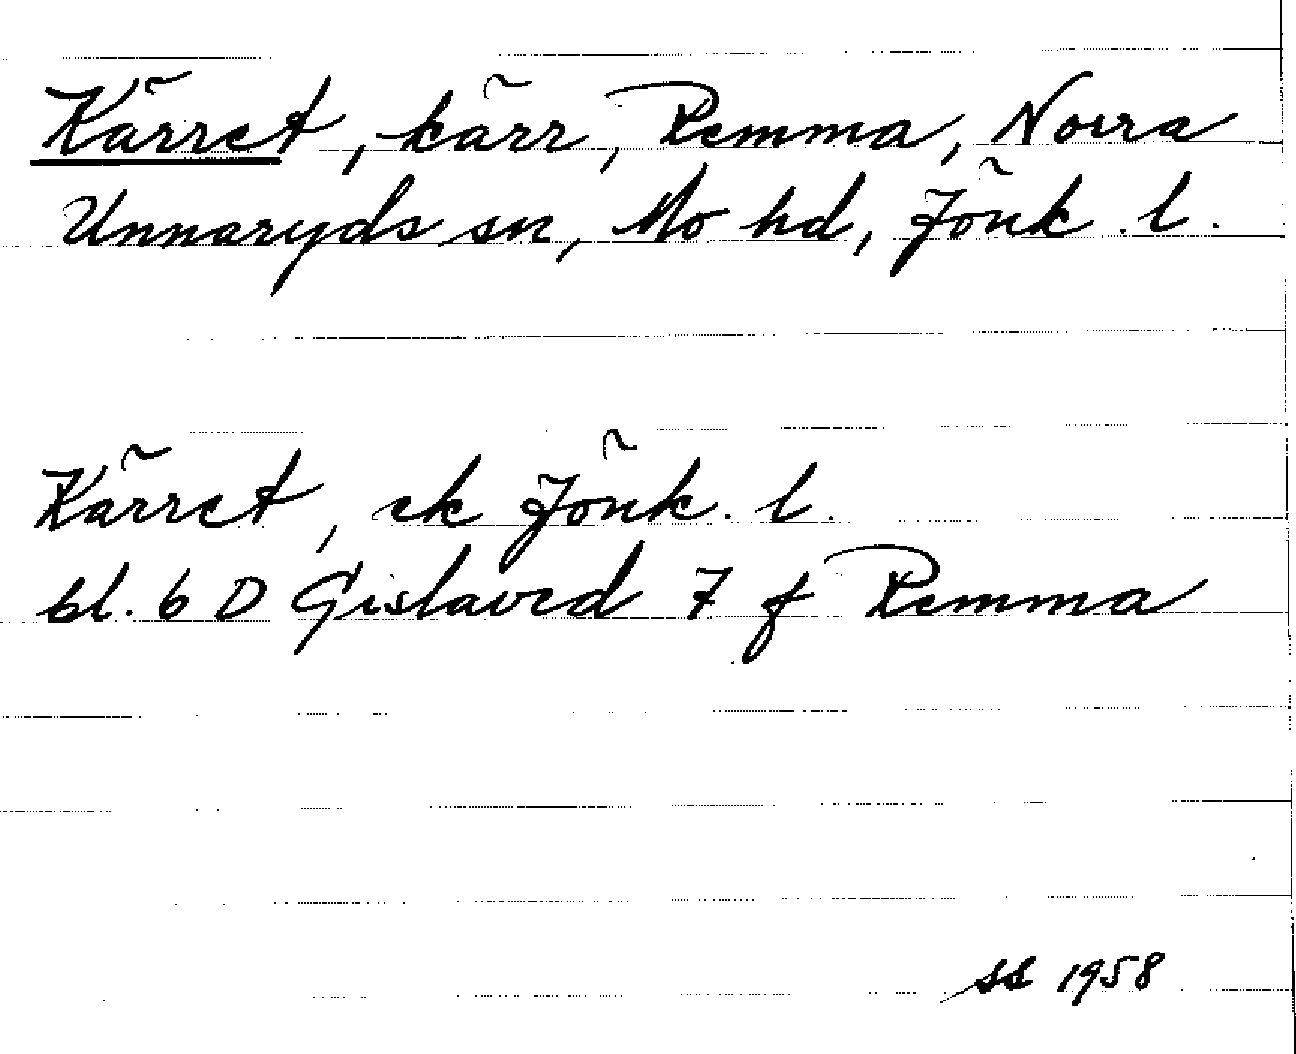 Kärret, kärr, Remma, Norra
Unnaryds sn, Mo hd, Jönk. l.
Kärret, ek Jönk. l.
bl. 6 D Gislaved 7 f Remma
SS 1958